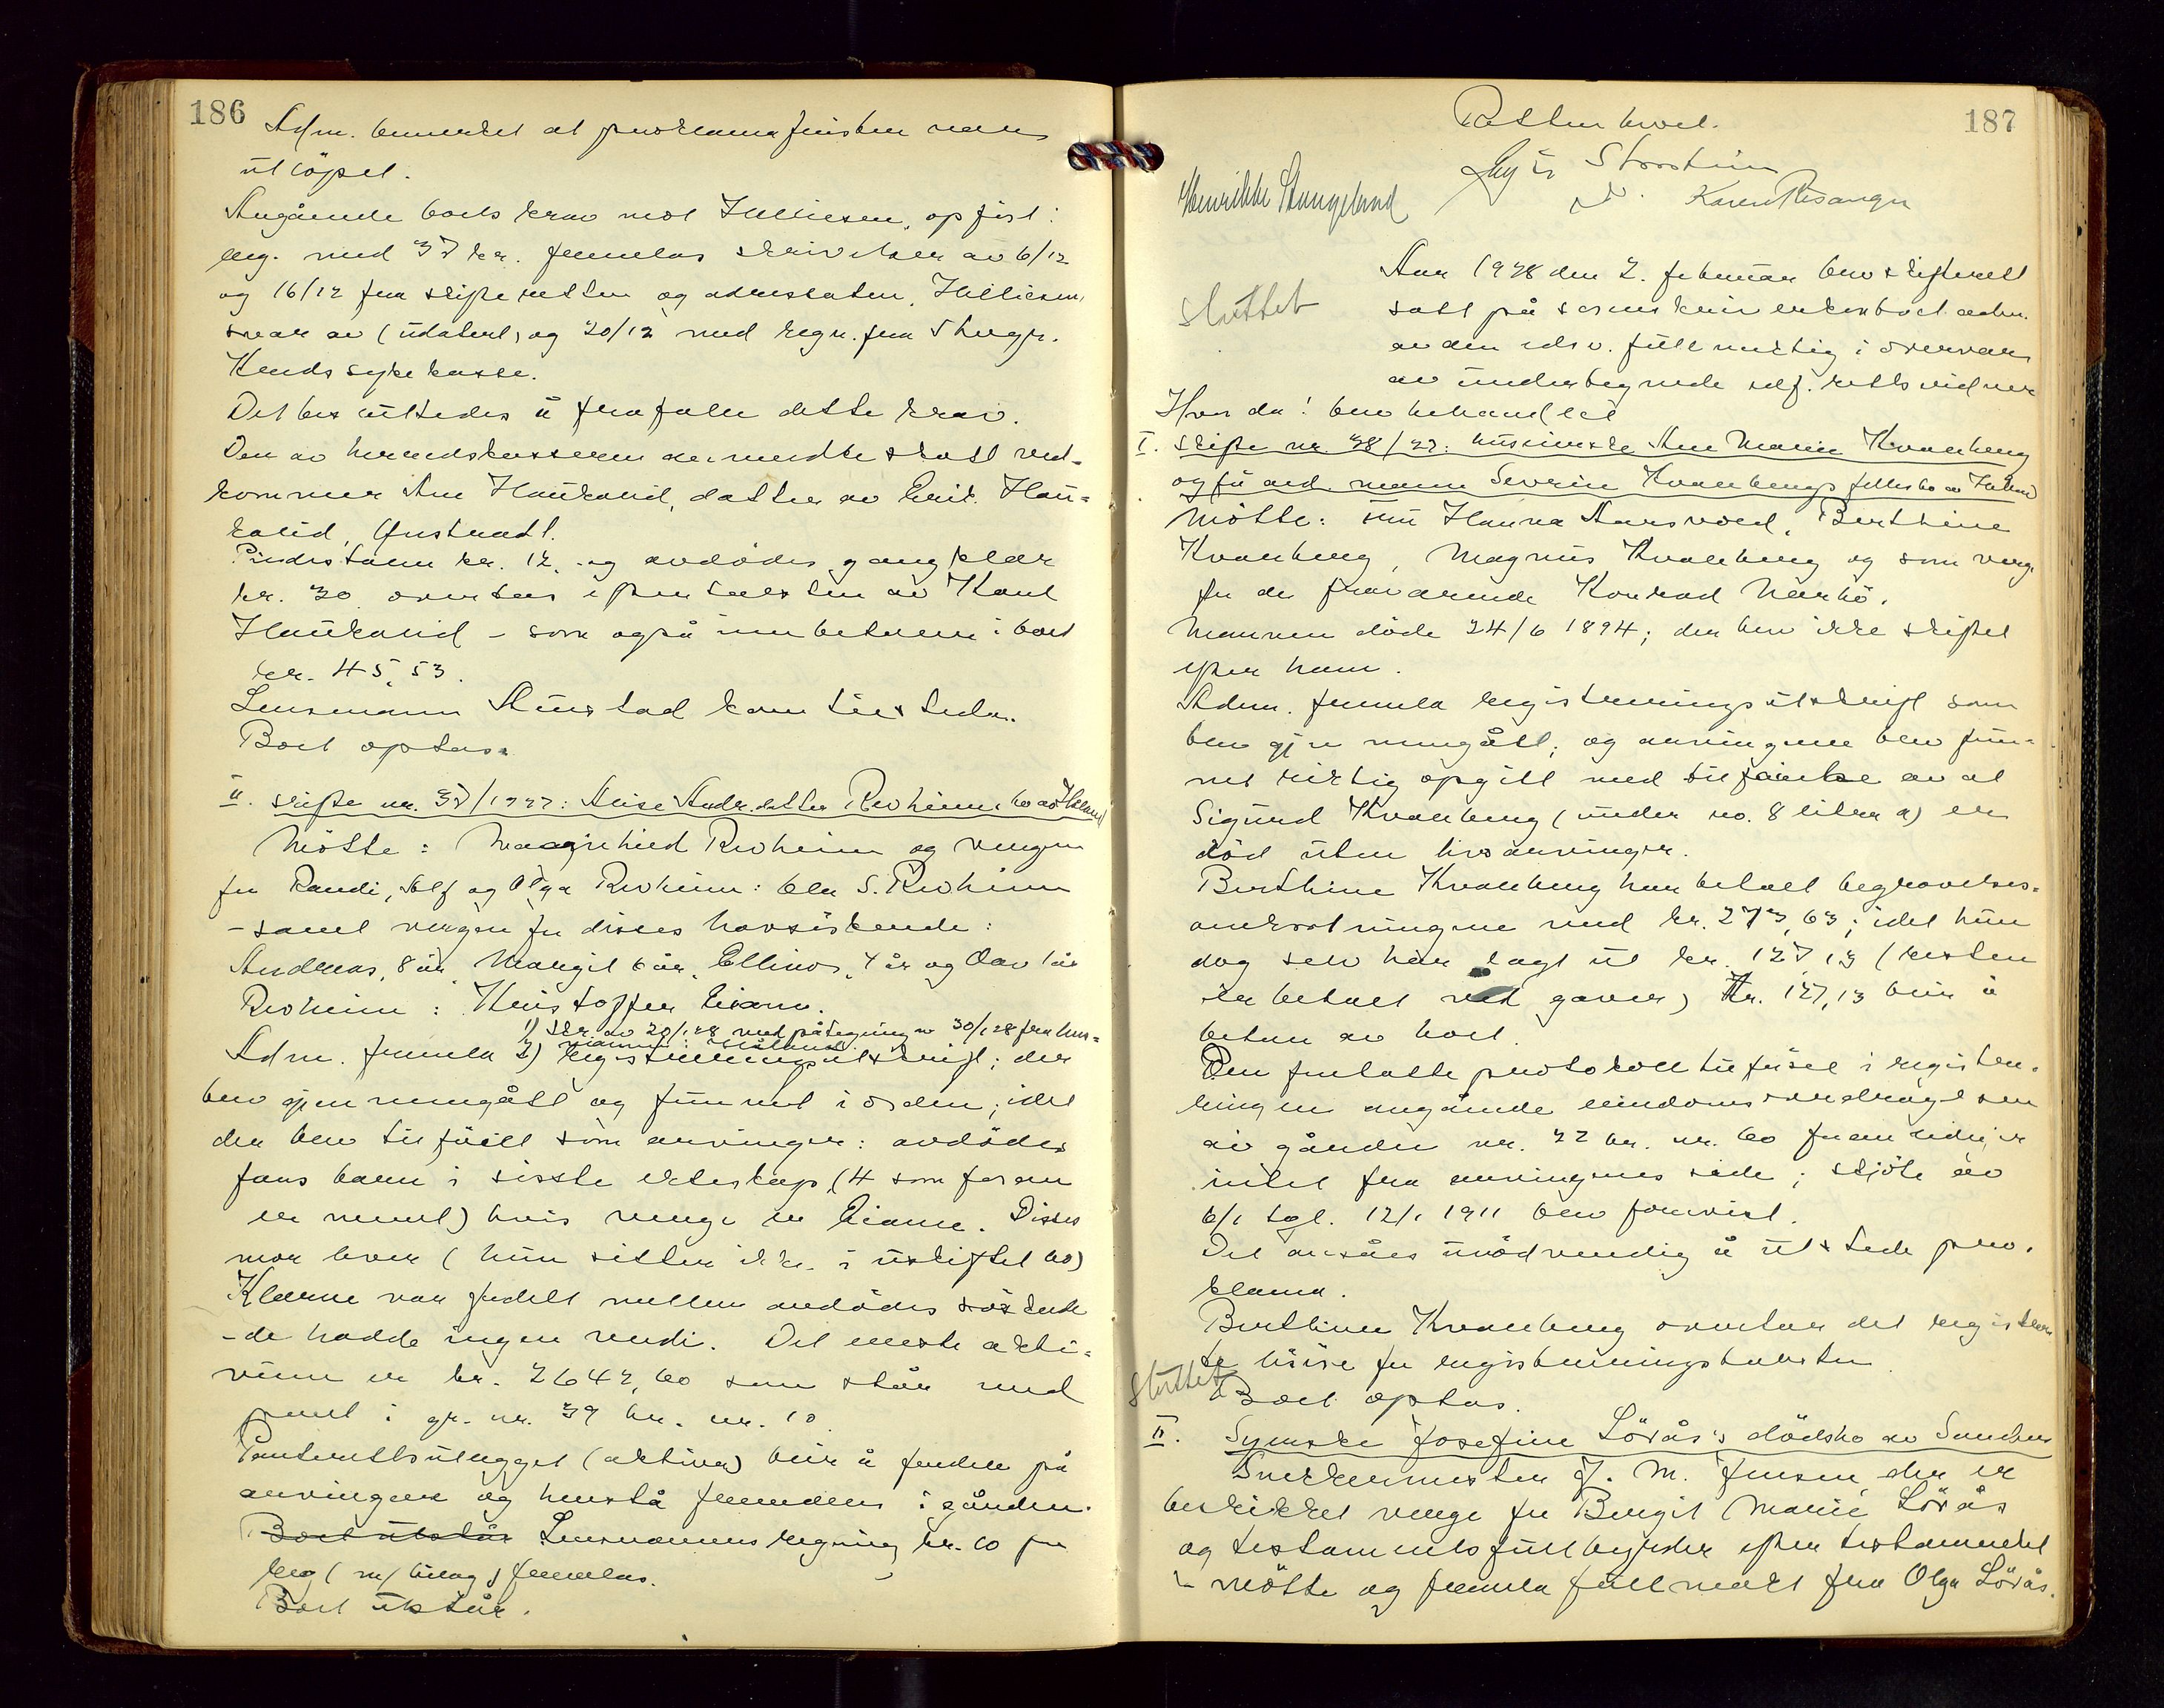 186
Adm. bemerket at proklamafristen var
utlöpet.
Angående boets krav mot Helliesen, opfört i
reg. med 37 kr. fremlas skrivelser av 6/12
og 16/12 fra skifteretten og advokaten, Helliesens
svar av (udatert) og 20/12 med regn. fra
syke kasse.
Det besluttedes å frafale dette krav.
Den av herredskassereren anmeldte skatt ved-
kommer Ane Haukalid, datter av Erik Hau-
kalid, Gnstad.
kr. 12, og avdödes gangklær
kr. 30 overtas efter taksten av Karl
Haukalid - som også innbetaler i boet
kr. 45,53.
Lensmann Aurstad kom tilstede.
Boet optas.
II. Skifte nr. 37/1927: Andr.datter Revheims bo av Heland
Mötte: Revheim og vergen
for Randi, Alf og Olga Revheim: S. Revheim
- samt vergen for disses havsöskende:
Andreas, 8 år, Margit 6 år, Ellinor, 4 år og Olav 1 år
Revheim: Kristoffer Eiane.
1) Skr. av 20/1 28 med påtegning av 30/1 28 fra
Adm. fremla 2) registreringsutskrift; den
blev gjennemgått og funnet i orden; idet
der blev tilföiet som arvinger: avdödes
fars barn i sisste ekteskap, (4 som foran
er nevnt) hvis verge er Eiane. Disses
mor lever (hun sitter ikke i uskiftet bo)
Klærne var fordelt mellem avdödes söskende
- de hadde ingen verdi. Det eneste akti-
vum er kr. 2642,60 som står med
pant i gr. nr. 39 br. nr. 10.
Panterettsutlegget (aktiva) blir å fordele på
arvingene og henstå fremdeles i gården.
Boet utstår Lensmannens regning kr. 10 for
reg (m/ bilag) fremlas.
Boet utstår.
187
Retten hevet.
Storsteim
Henrikke Stangeland
Karen Risanger
sluttet
Aar 1928 den 2. februar blev skifterett
satt på sorenskriverkontoret adm.
av den edsv. fullmektig i overvær
av undertegnede edf. rettsvidner
Hvor da! blev behandlet
I. Skifte nr. 38/27: husmorske Ane Marie Kvaleberg
og för avd. mann Severin Kvalebergs fellesbo av Hetland
Mötte: fru Hanna Aarsvold, Berthine
Kvaleberg, Magnus Kvaleberg og som verge
for de fraværende Konrad Nærbö.
Mannen döde 24/6 1894; der blev ikke skiftet
efter ham.
Adm. fremla registreringsutskrift som
blev gjennemgått; og arvingene blev fun-
net riktig opgitt med tilföielse av at
Sigurd Kvaleberg (under no. 8 litra a) er
död uten livsarvinger.
Berthine Kvaleberg har betalt begravelses-
omkostningene med kr. 273,63; idet hun
dog selv har lagt ut kr. 127,13 (resten
er betalt ved gaver) Kr. 127,13 blir å
betale av boet.
Den forlatte protokolltilförsel i registre-
ringen angående eiendomsoverdragelsen
av gården nr. 22 br. nr. 60
intet fra arvingenes side; skjöte av
6/1 tgl. 12/1 1911 blev forevist.
Det ansåes unödvendig å utstede pro-
klama.
Berthine Kvaleberg overtar det registrer-
te lösöre for registreringstaksten
sluttet
Boet optas.
II. Syerske Josefine Lövås's dödsbo av Sandnes
Snekkermester J. M. Jensen, der er
beskikket verge for Bergit Marie Lövås
og testamentsfullbyrder efter testamentet
- mötte og fremla fullmakt fra Olga Lövås.